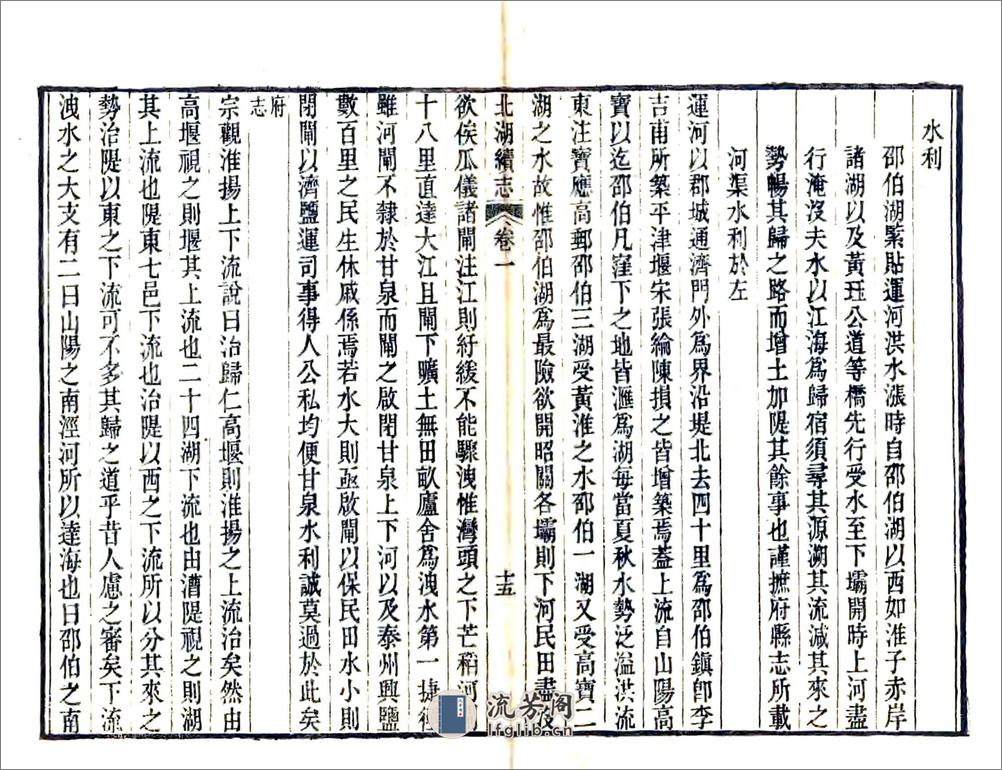 水利
邵伯湖緊貼運河洪水漲時自邵伯湖以西如淮子赤岸
諸湖以及黃珏公道等橋先行受水至下壩開時上河盡
行淹沒夫水以江海爲歸宿須尋其源溯其流減其來之
勢暢其歸之路而增土加隄其餘事也謹摭府縣志所載
河渠水利於左
運河以郡城通濟門外爲界沿堤北去四十里爲邵伯鎭卽李
吉甫所築平津堰宋張綸陳損之皆增築焉葢上流自山陽高
寶以迄邵伯凡窪下之地皆滙爲湖每當夏秋水勢泛溢洪流
東注寶應高郵邵伯三湖受黃淮之水邵伯一湖又受高寶二
湖之水故惟邵伯湖爲最險欲開昭關各壩則下河民田盡
北湖續志 卷一 十五
欲俟瓜儀諸閘注江則紆緩不能驟洩惟灣頭之下芒稻河
十八里直達大江且閘下曠土無田畝廬舍爲洩水第一捷
雖河閘不隸於甘泉而閘之啟閉甘泉上下河以及泰州興鹽
數百里之民生休戚係焉若水大則亟啟閘以保民田水小則
閉閘以濟鹽運司事得人公私均便甘泉水利誠莫過於此矣
府志
宗觀淮揚上下流說曰治歸仁高堰則淮揚之上流治矣然由
高堰視之則堰其上流也二十四湖下流也由漕隄視之則湖
其上流也隄東七邑下流也治隄以西之下流所以分其來之
勢治隄以東之下流可不多其歸之道乎昔人慮之審矣下流
洩水之大支有二曰山陽之南涇河所以達海也曰邵伯之南
流芳阁
lfglib.cn